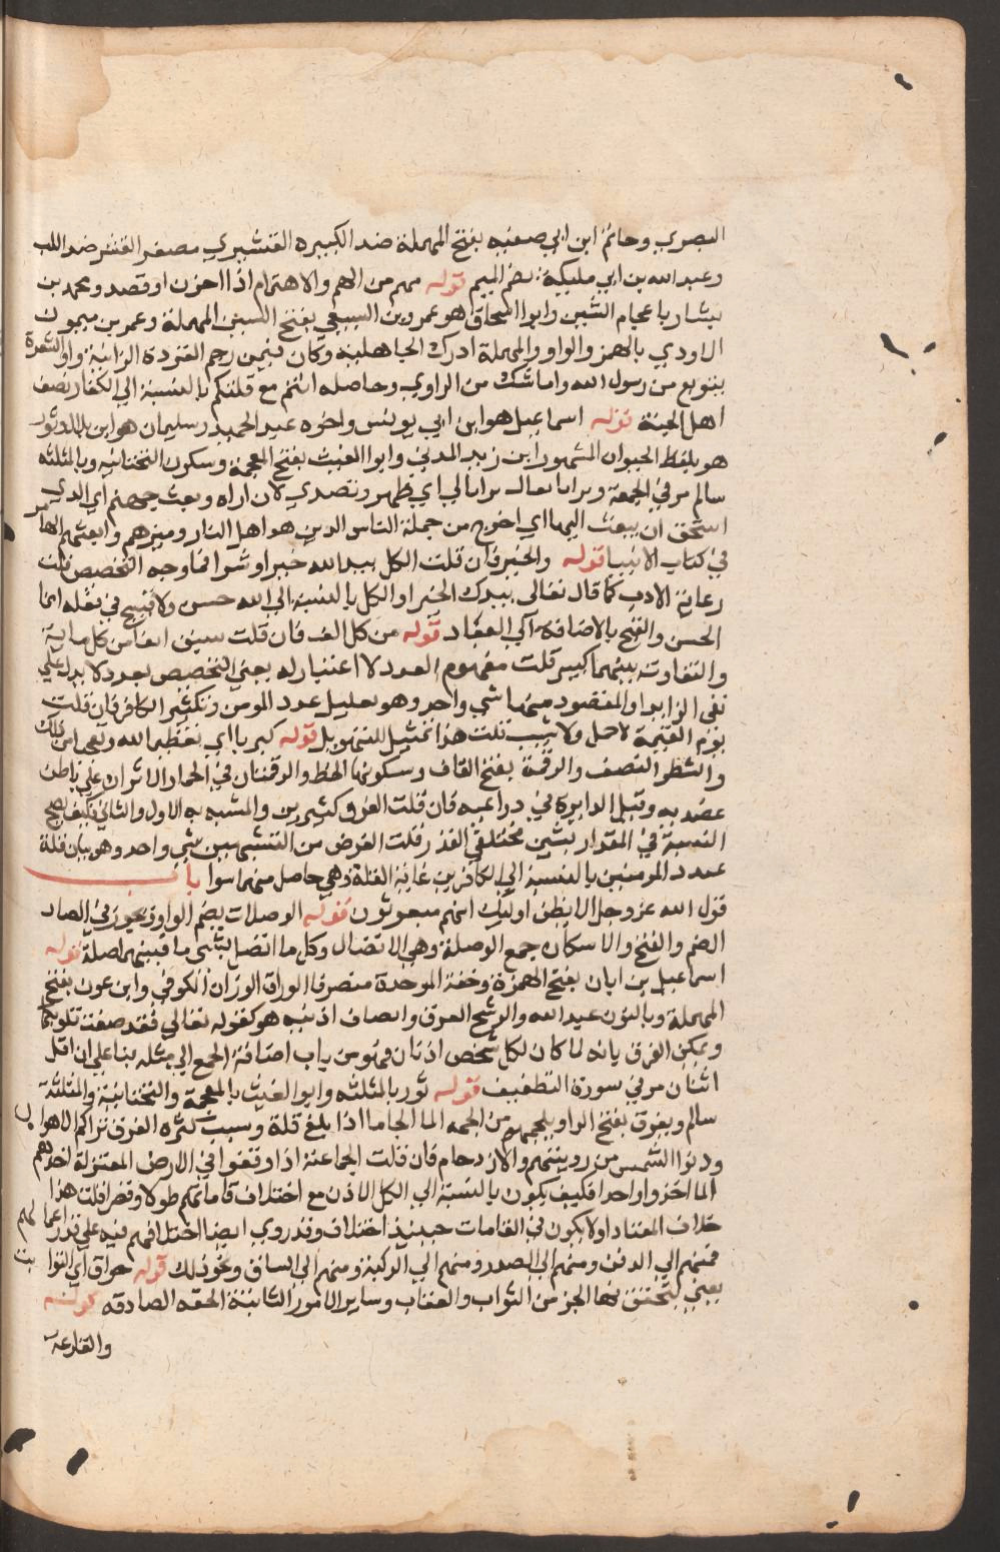 البصري وحاتم ابن ابي صغيره بفتح المهملة ضد الكبيره القشيري مصغر القشر ضد اللب
وعبد الله بن ابي مليكة بضم الميم قوله مهم من الهم والاهتمام اذا احزن او قصد ومحمد بن
بشار باعجام الشين وابوا اسحاق هو عمرو بن السبيعي بفتح السين المهملة وعمر بن ميمون
الاودي بالهمز والواو والمهملة ادرك الجاهلية وكان فيمن رجم القردة الزانية واو الشعرة
بتنويع من رسول الله واما شك من الراوي وحاصله انتم مع قلتكم بالنسبة الي الكفار نصف
اهل الجنة قوله اسماعيل هو ابن ابي يونس واخوه عبد الحميد وسليمان هو ابن بلال وثور
هو بلفظ الحيوان المشهور ابن زيد المدني وابوا الغيث بفتح المعجمة وسكون التحتانية وبالمثلثة
سالم مر في الجمعة وترايا يقال ترايا لي اي ظهر وتصدي لان اراه وبعث جهنم اي الذي
استحق ان يبعث اليها اي اخرج من جملة الناس الذين هو اهل النار وميزهم وابعثهم اليها مر
في كتاب الانبيا قوله والخير فان قلت الكل بيد الله خيرا وشرا فما وجه التخصص قلت
رعاية الادب كما قال تعالى بيدك الخير او الكل بالنسبة الي الله حسن ولا قبيح في فعله انما
الحسن والقبح بالاضافة الي العباد قوله من كل الف فان قلت سبق انفا من كل ماية
والتفاوت بينهما كبير قلت مفهوم العدد لا اعتبار له يعني التخصص بعدد لا يدل علي
نفي الزايد او المقصود منهما شي واحد وهو تقليل عدد المومن وتكثير الكافر فان قلت
يوم القيمة لا حمل ولا شيب قلت هذا تمثيل للتهويل قوله كبرنا اي تعظيما لله وتعجبا من ذلك
والشطر النصف والرقمة بفتح القاف وسكونها الخط والرقمتان في الحمار الاثران علي باطن
عضديه وقيل الدايرة في ذراعيه فان قلت الفرق كثير بين والمشبه به الاول والثاني فكيف يصح
التشبية في المقدار بشين مختلفي القدر قلت الغرض من التشبيهين شي واحد وهو بيان قلة
عدد المومنين بالنسبة الي الكافرين غاية القلة وهي حاصل منهما سوا باب
قول الله عز وجل الا يظن اوليك انهم مبعوثون قوله الوصلات بضم الواو ويجوز في الصاد
الضم والفتح والاسكان جمع الوصلة وهي الاتصال وكل ما اتصل بشي ما فبينهما صلة قوله
اسماعيل بن ابان بفتح الهمزة وخفة الموحدة منصرفا الوراق الوزان الكوفي وابن عون بفتح
المهملة وبالنون عبد الله والرشح العرق وانصاف اذنيه هو كقوله تعالي فقد صغت قلوبكما
ويمكن الفرق بانه لما كان لكل شخص اذنان فهو من باب اضافة الجمع الي مثله بنا علي ان اقل
اثنان مر في سورة التطفيف قوله ثور بالمثلثه وابو الغيث بالمعجمة والتحتانية والمثلثة
سالم ويعرق بفتح الرا ويلجمهم من الجمه الما الجاما اذا بلغ قلة وسبب كثره العرق تراكم الاهوا ل
ودنوا الشمس من رووسهم والازدحام فان قلت الجماعة اذا وقفوا في الارض المعتدلة اخذهم
الما اخذا واحدا فكيف يكون بالنسبة الي الكل الاذن مع اختلاف قاماتهم طولا وقصرا قلت هذا
خلاف المعتاد او لا يكون في القامات حينيذ اختلاف وقد روي ايضا اختلافهم فيه علي قدر اعما لهم
فمنهم الي الذقن ومنهم الي الصدر ومنهم الي الركبة ومنهم الي الساق ونحو ذلك قوله حواق اي الثوا بت
يعني يتحقق فيها الجز من الثواب والعقاب وساير الامور الثابتة الحقه الصادقه قوله
والقارعه